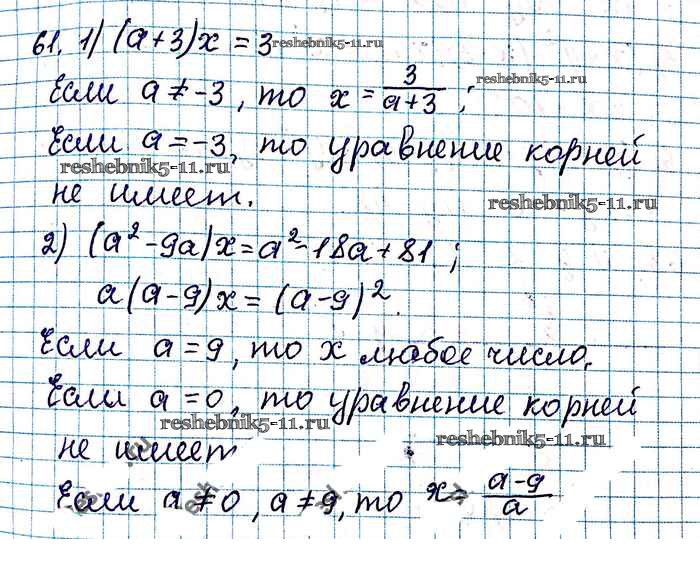 61. 1) (a+3)x = 3 reshebnik5-11.ru
Если a ≠ -3, то x = 3/(a+3); reshebnik5-11.ru
Если a = -3, то уравнение корней
reshebnik5-11.ru
не имеет. reshebnik5-11.ru
2) (a² - 9a)x = a² - 18a + 81;
a(a-9)x = (a-9)².
Если a = 9, то x любое число.
Если a = 0, то уравнение корней
reshebnik5-11.ru reshebnik5-11.ru
не имеет
Если a ≠ 0, a ≠ 9, то x = (a-9)/a